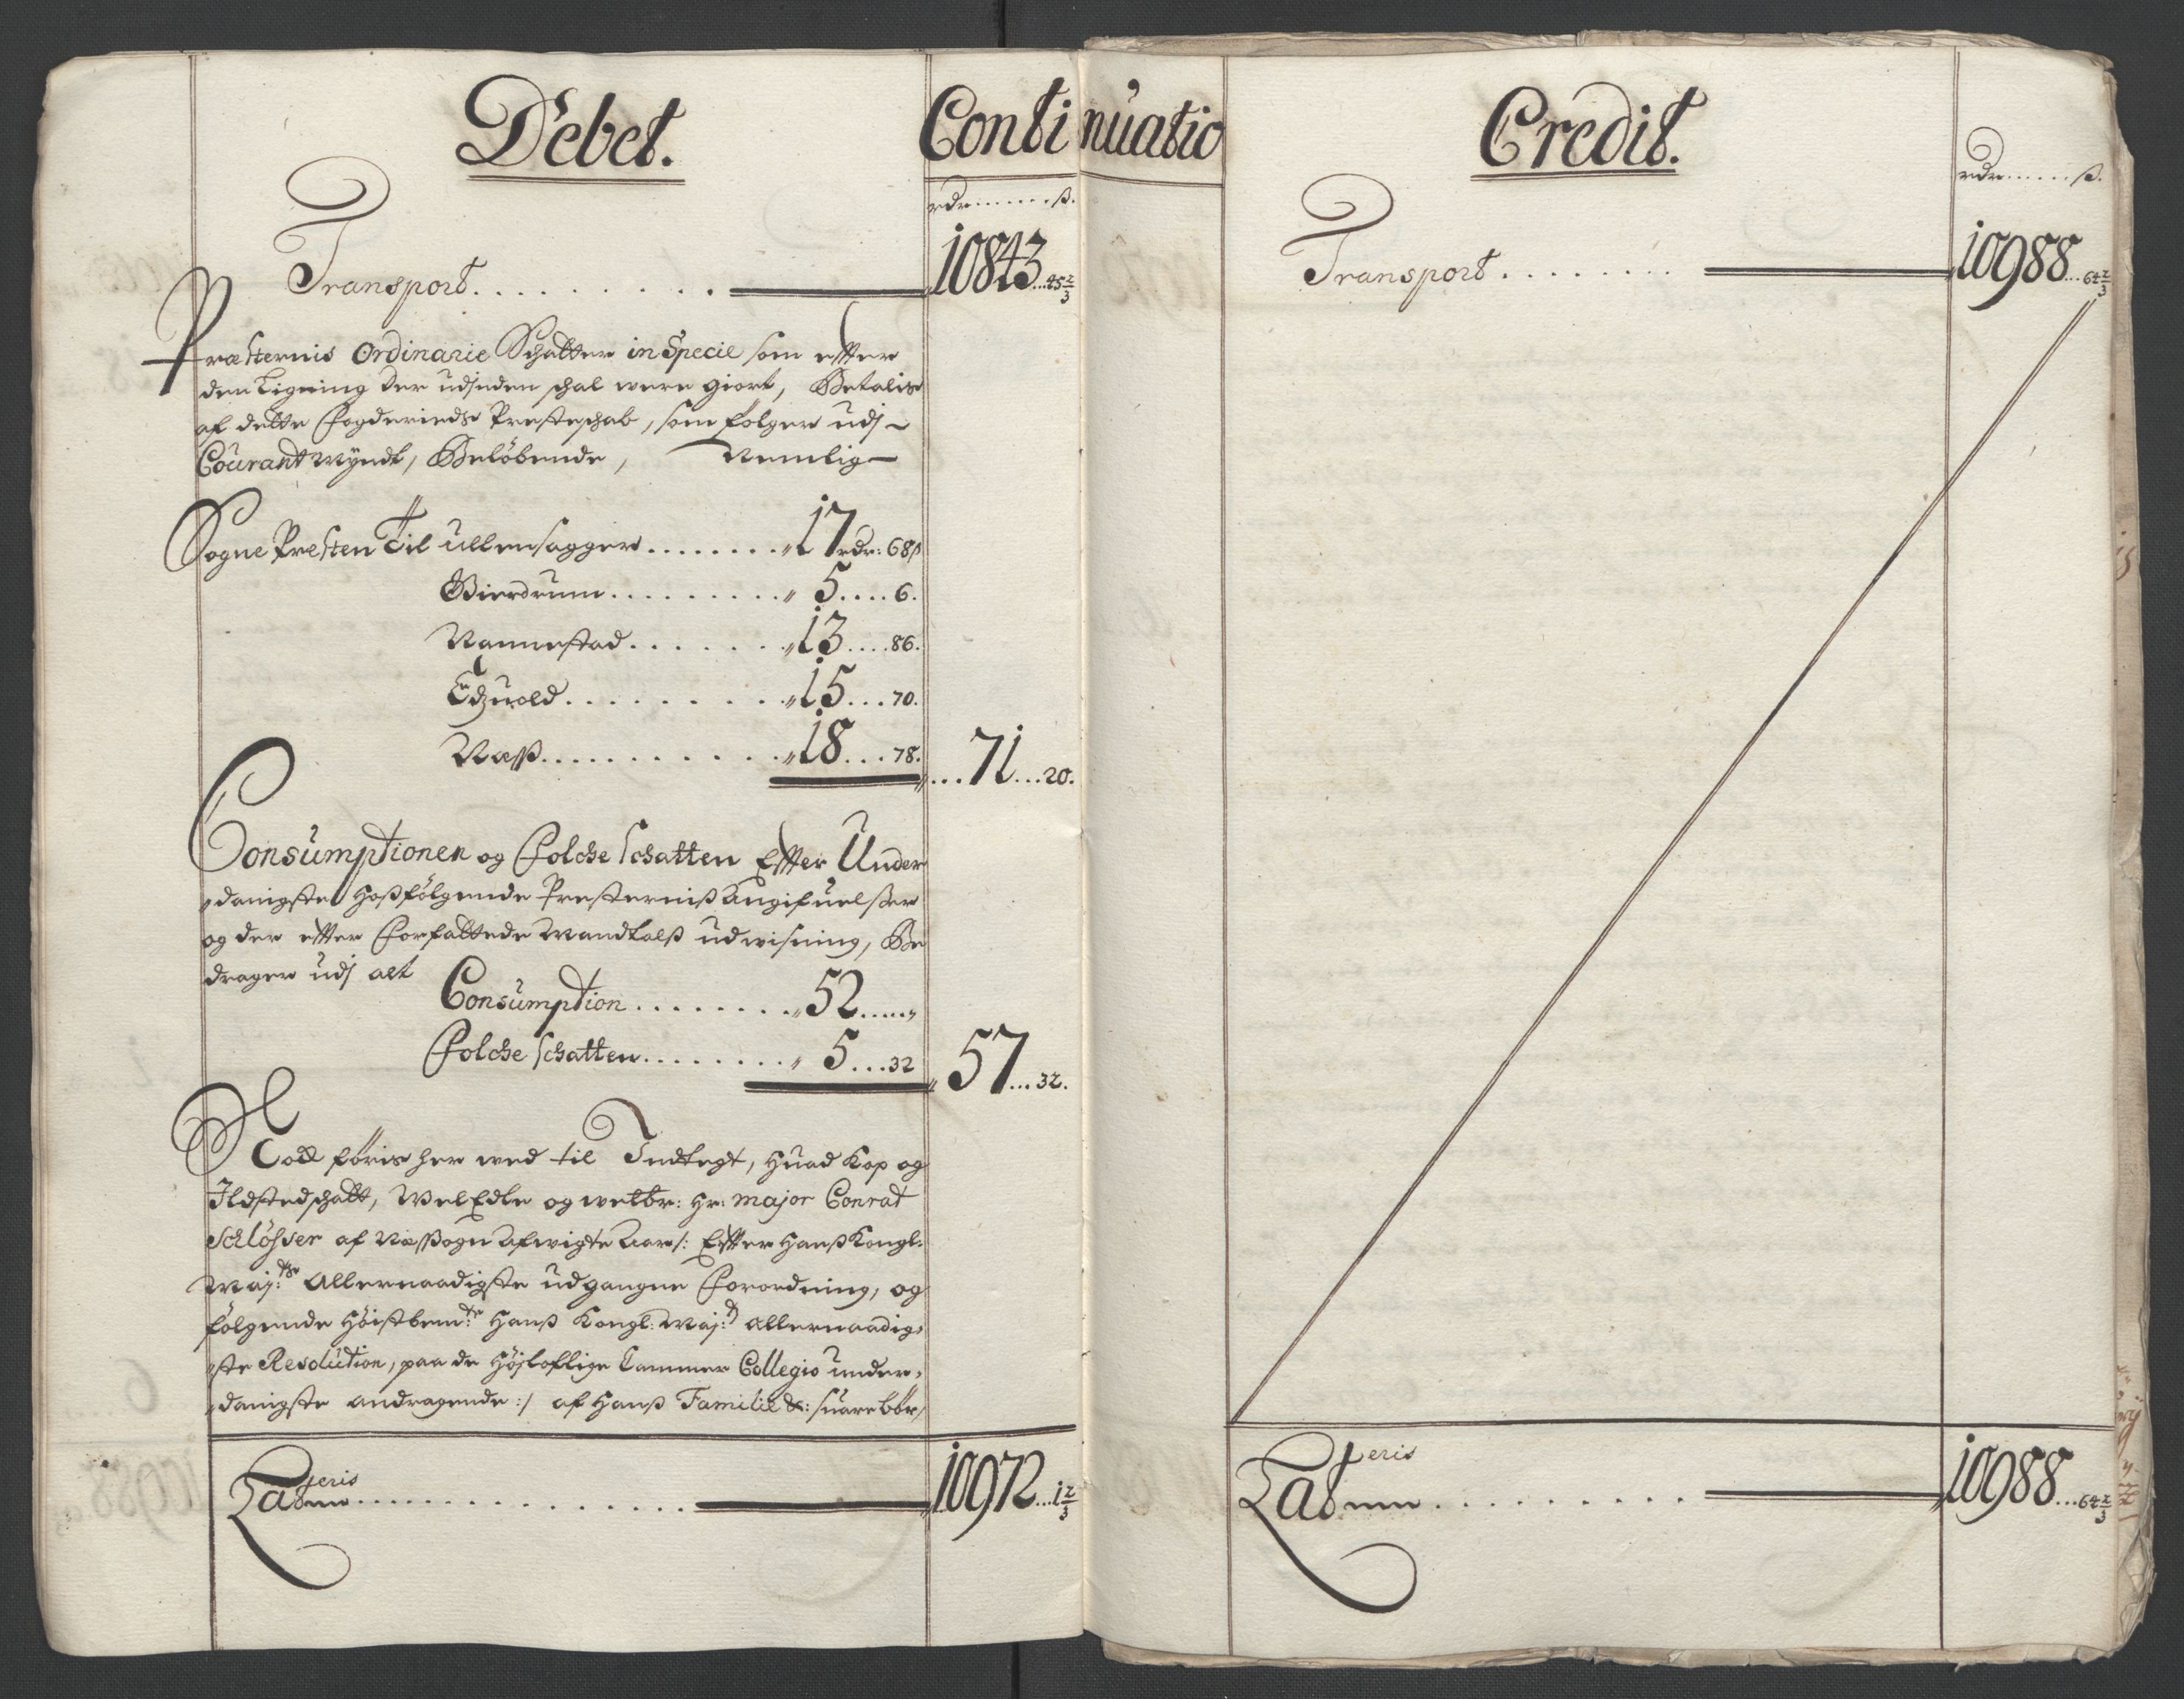 Debet.
Continuatio
rdr......ß.
Transport......... 10843...45 2/3
Præsternis Ordinarie Schatter in Specie som effter
den Ligning der udjnden schal were giort, Betalis
af dette Fogderieds Presteschab, som følger udj
Courant Myndt, Beløbende, Nemlig
Sogne Presten Til Ullensagger........ 17 rdr: 68 ß
Gierdrum......... 5.... 6.
Nannestad....... 13.... 86.
Edzuold......... 15... 70.
Næss........... 18... 78. ...71...20.
Consumptionen og Folche Schatten Effter Under
danigste Hosfølgende Presterniss Angifuelsser
og der effter Forfattede Mandtalss udwisning, Be
drager udj alt
Consumption........ 52.....
Folche Schatten........ 5...32 57...32.
Noch føris her wed til Indtegt, Huad Kop og
Ildstedschatt, WelEdle og welbr: Hr: Major Conrat
Schlösser af Næssogn Afwigte Aar /: Effter Hanss Kongl:
May:ts Allernaadigste udgangne Forordning, og
følgende Høistbem:te Hanss Kongl: May:ts allernaadig,
ste Resolution, paa de Højloflige Cammer Collegio under,
danigste andragende :/ af Hanss Familie &: suare bör,
Lateris
Lat......... 10972...1 2/3
Credit.
rdr......ß.
Transport........ 10988...64 2/3
Lateris
Lat......... 10988...64 2/3